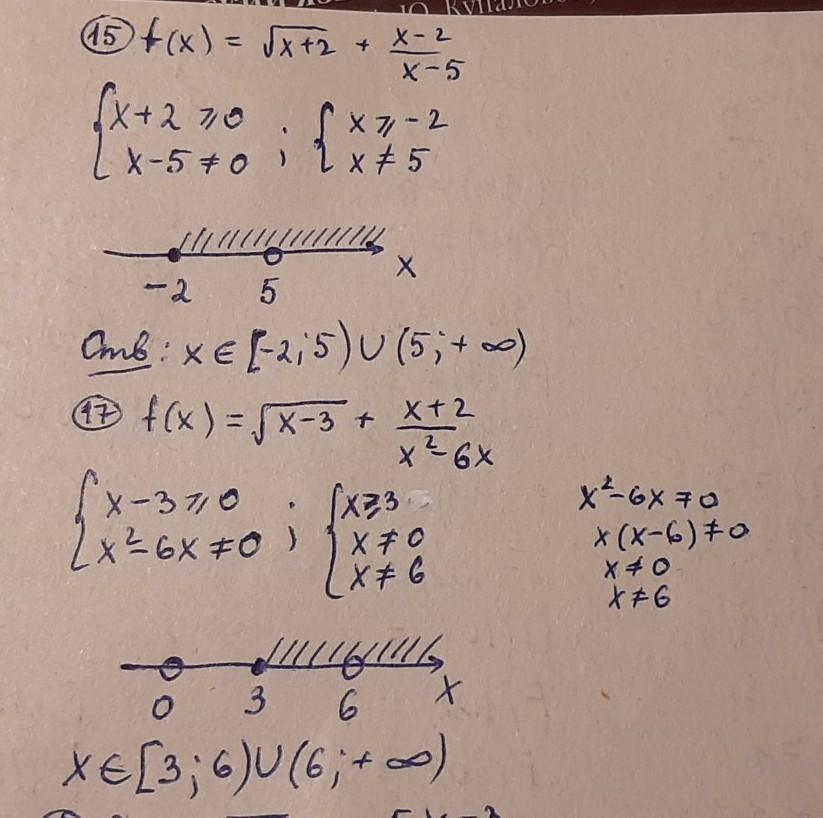 Ю. Купалов
15 f(x) = √(x+2) + (x-2)/(x-5)
{ x+2 ⩾ 0 ; { x ⩾ -2
x-5 ≠ 0 x ≠ 5
-2 5 x
Отв: x ∈ [-2; 5) ∪ (5; + ∞)
17 f(x) = √(x-3) + (x+2)/(x²-6x)
{ x-3 ⩾ 0 ; { x ⩾ 3
x²-6x ≠ 0 x ≠ 0
x ≠ 6
x²-6x ≠ 0
x(x-6) ≠ 0
x ≠ 0
x ≠ 6
0 3 6 x
x ∈ [3; 6) ∪ (6; + ∞)